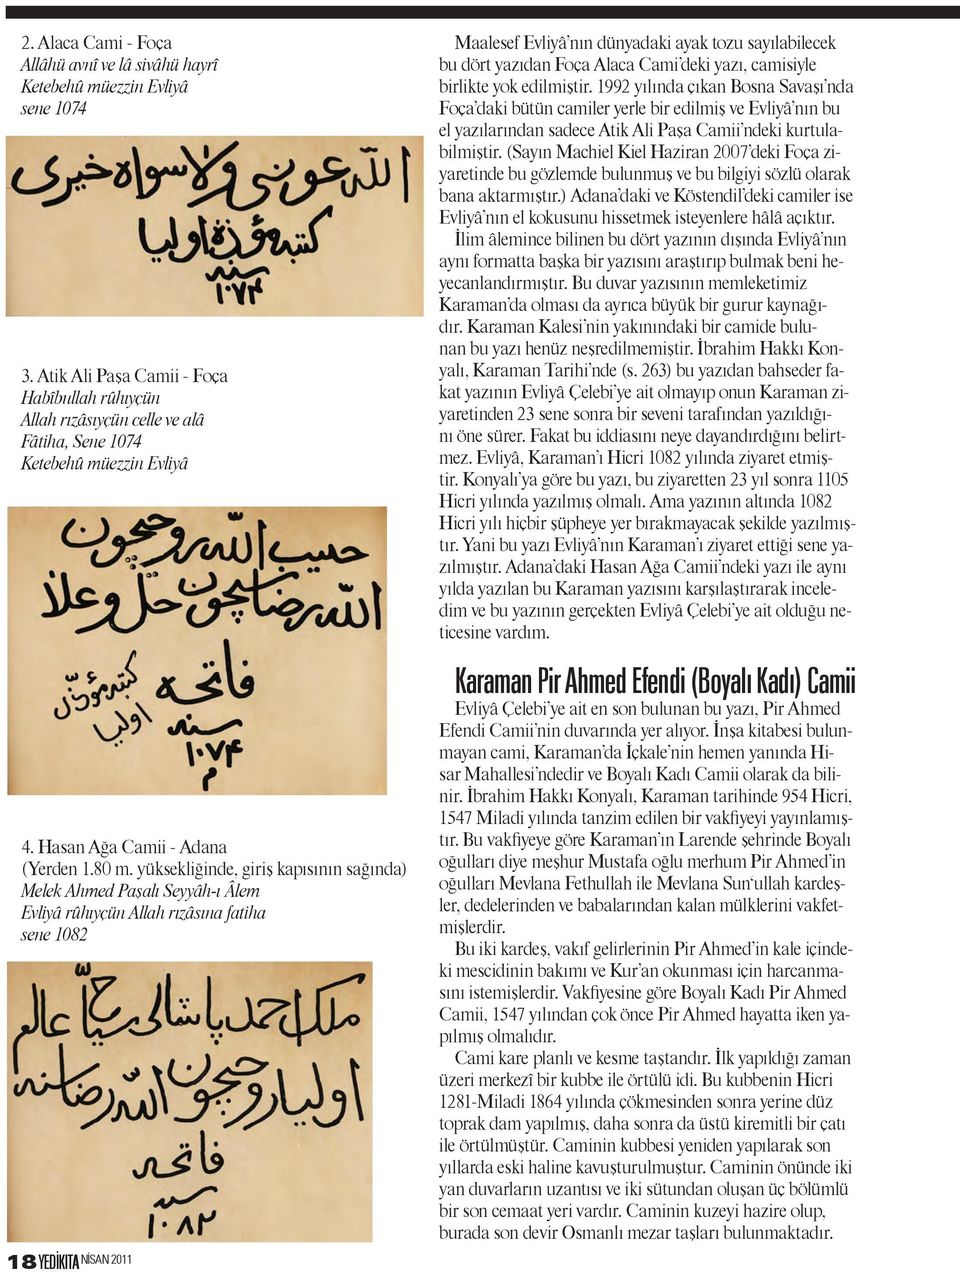 2. Alaca Cami - Foça
Allâhü avnî ve lâ sivâhü hayrî
Ketebehû müezzin Evliyâ
sene 1074
الله عونى ولا سواه خيرى
كتبه مؤذن اوليا
سنه
١٠٧۴
3. Atik Ali Paşa Camii - Foça
Habîbullah rûhıyçün
Allah rızâsıyçün celle ve alâ
Fâtiha, Sene 1074
Ketebehû müezzin Evliyâ
حبيب الله روحيچون
الله رضاسيچون جل وعلا
فاتحه
سنه
١٠٧۴
م
كتبه مؤذن
اوليا
4. Hasan Ağa Camii - Adana
(Yerden 1.80 m. yüksekliğinde, giriş kapısının sağında)
Melek Ahmed Paşalı Seyyâh-ı Âlem
Evliyâ rûhıyçün Allah rızâsına fatiha
sene 1082
ملك احمد پاشالى سياح عالم
اوليا روحيچون الله رضاسنه
فاتحه
سنه
١٠٨٢
Maalesef Evliyâ’nın dünyadaki ayak tozu sayılabilecek
bu dört yazıdan Foça Alaca Cami’deki yazı, camisiyle
birlikte yok edilmiştir. 1992 yılında çıkan Bosna Savaşı’nda
Foça’daki bütün camiler yerle bir edilmiş ve Evliyâ’nın bu
el yazılarından sadece Atik Ali Paşa Camii’ndeki kurtula-
bilmiştir. (Sayın Machiel Kiel Haziran 2007’deki Foça zi-
yaretinde bu gözlemde bulunmuş ve bu bilgiyi sözlü olarak
bana aktarmıştır.) Adana’daki ve Köstendil’deki camiler ise
Evliyâ’nın el kokusunu hissetmek isteyenlere hâlâ açıktır.
İlim âlemince bilinen bu dört yazının dışında Evliyâ’nın
aynı formatta başka bir yazısını araştırıp bulmak beni he-
yecanlandırmıştır. Bu duvar yazısının memleketimiz
Karaman’da olması da ayrıca büyük bir gurur kaynağı-
dır. Karaman Kalesi’nin yakınındaki bir camide bulu-
nan bu yazı henüz neşredilmemiştir. İbrahim Hakkı Kon-
yalı, Karaman Tarihi’nde (s. 263) bu yazıdan bahseder fa-
kat yazının Evliyâ Çelebi’ye ait olmayıp onun Karaman zi-
yaretinden 23 sene sonra bir seveni tarafından yazıldığı-
nı öne sürer. Fakat bu iddiasını neye dayandırdığını belirt-
mez. Evliyâ, Karaman’ı Hicri 1082 yılında ziyaret etmiş-
tir. Konyalı’ya göre bu yazı, bu ziyaretten 23 yıl sonra 1105
Hicri yılında yazılmış olmalı. Ama yazının altında 1082
Hicri yılı hiçbir şüpheye yer bırakmayacak şekilde yazılmış-
tır. Yani bu yazı Evliyâ’nın Karaman’ı ziyaret ettiği sene ya-
zılmıştır. Adana’daki Hasan Ağa Camii’ndeki yazı ile aynı
yılda yazılan bu Karaman yazısını karşılaştırarak incele-
dim ve bu yazının gerçekten Evliyâ Çelebi’ye ait olduğu ne-
ticesine vardım.
Karaman Pir Ahmed Efendi (Boyalı Kadı) Camii
Evliyâ Çelebi’ye ait en son bulunan bu yazı, Pir Ahmed
Efendi Camii’nin duvarında yer alıyor. İnşa kitabesi bulun-
mayan cami, Karaman’da İçkale’nin hemen yanında Hi-
sar Mahallesi’ndedir ve Boyalı Kadı Camii olarak da bili-
nir. İbrahim Hakkı Konyalı, Karaman tarihinde 954 Hicri,
1547 Miladi yılında tanzim edilen bir vakfiyeyi yayınlamış-
tır. Bu vakfiyeye göre Karaman’ın Larende şehrinde Boyalı
oğulları diye meşhur Mustafa oğlu merhum Pir Ahmed’in
oğulları Mevlana Fethullah ile Mevlana Sun‘ullah kardeş-
ler, dedelerinden ve babalarından kalan mülklerini vakfet-
mişlerdir.
Bu iki kardeş, vakıf gelirlerinin Pir Ahmed’in kale içinde-
ki mescidinin bakımı ve Kur’an okunması için harcanma-
sını istemişlerdir. Vakfiyesine göre Boyalı Kadı Pir Ahmed
Camii, 1547 yılından çok önce Pir Ahmed hayatta iken ya-
pılmış olmalıdır.
Cami kare planlı ve kesme taştandır. İlk yapıldığı zaman
üzeri merkezî bir kubbe ile örtülü idi. Bu kubbenin Hicri
1281-Miladi 1864 yılında çökmesinden sonra yerine düz
toprak dam yapılmış, daha sonra da üstü kiremitli bir çatı
ile örtülmüştür. Caminin kubbesi yeniden yapılarak son
yıllarda eski haline kavuşturulmuştur. Caminin önünde iki
yan duvarların uzantısı ve iki sütundan oluşan üç bölümlü
bir son cemaat yeri vardır. Caminin kuzeyi hazire olup,
burada son devir Osmanlı mezar taşları bulunmaktadır.
18 YEDİKITA NİSAN 2011